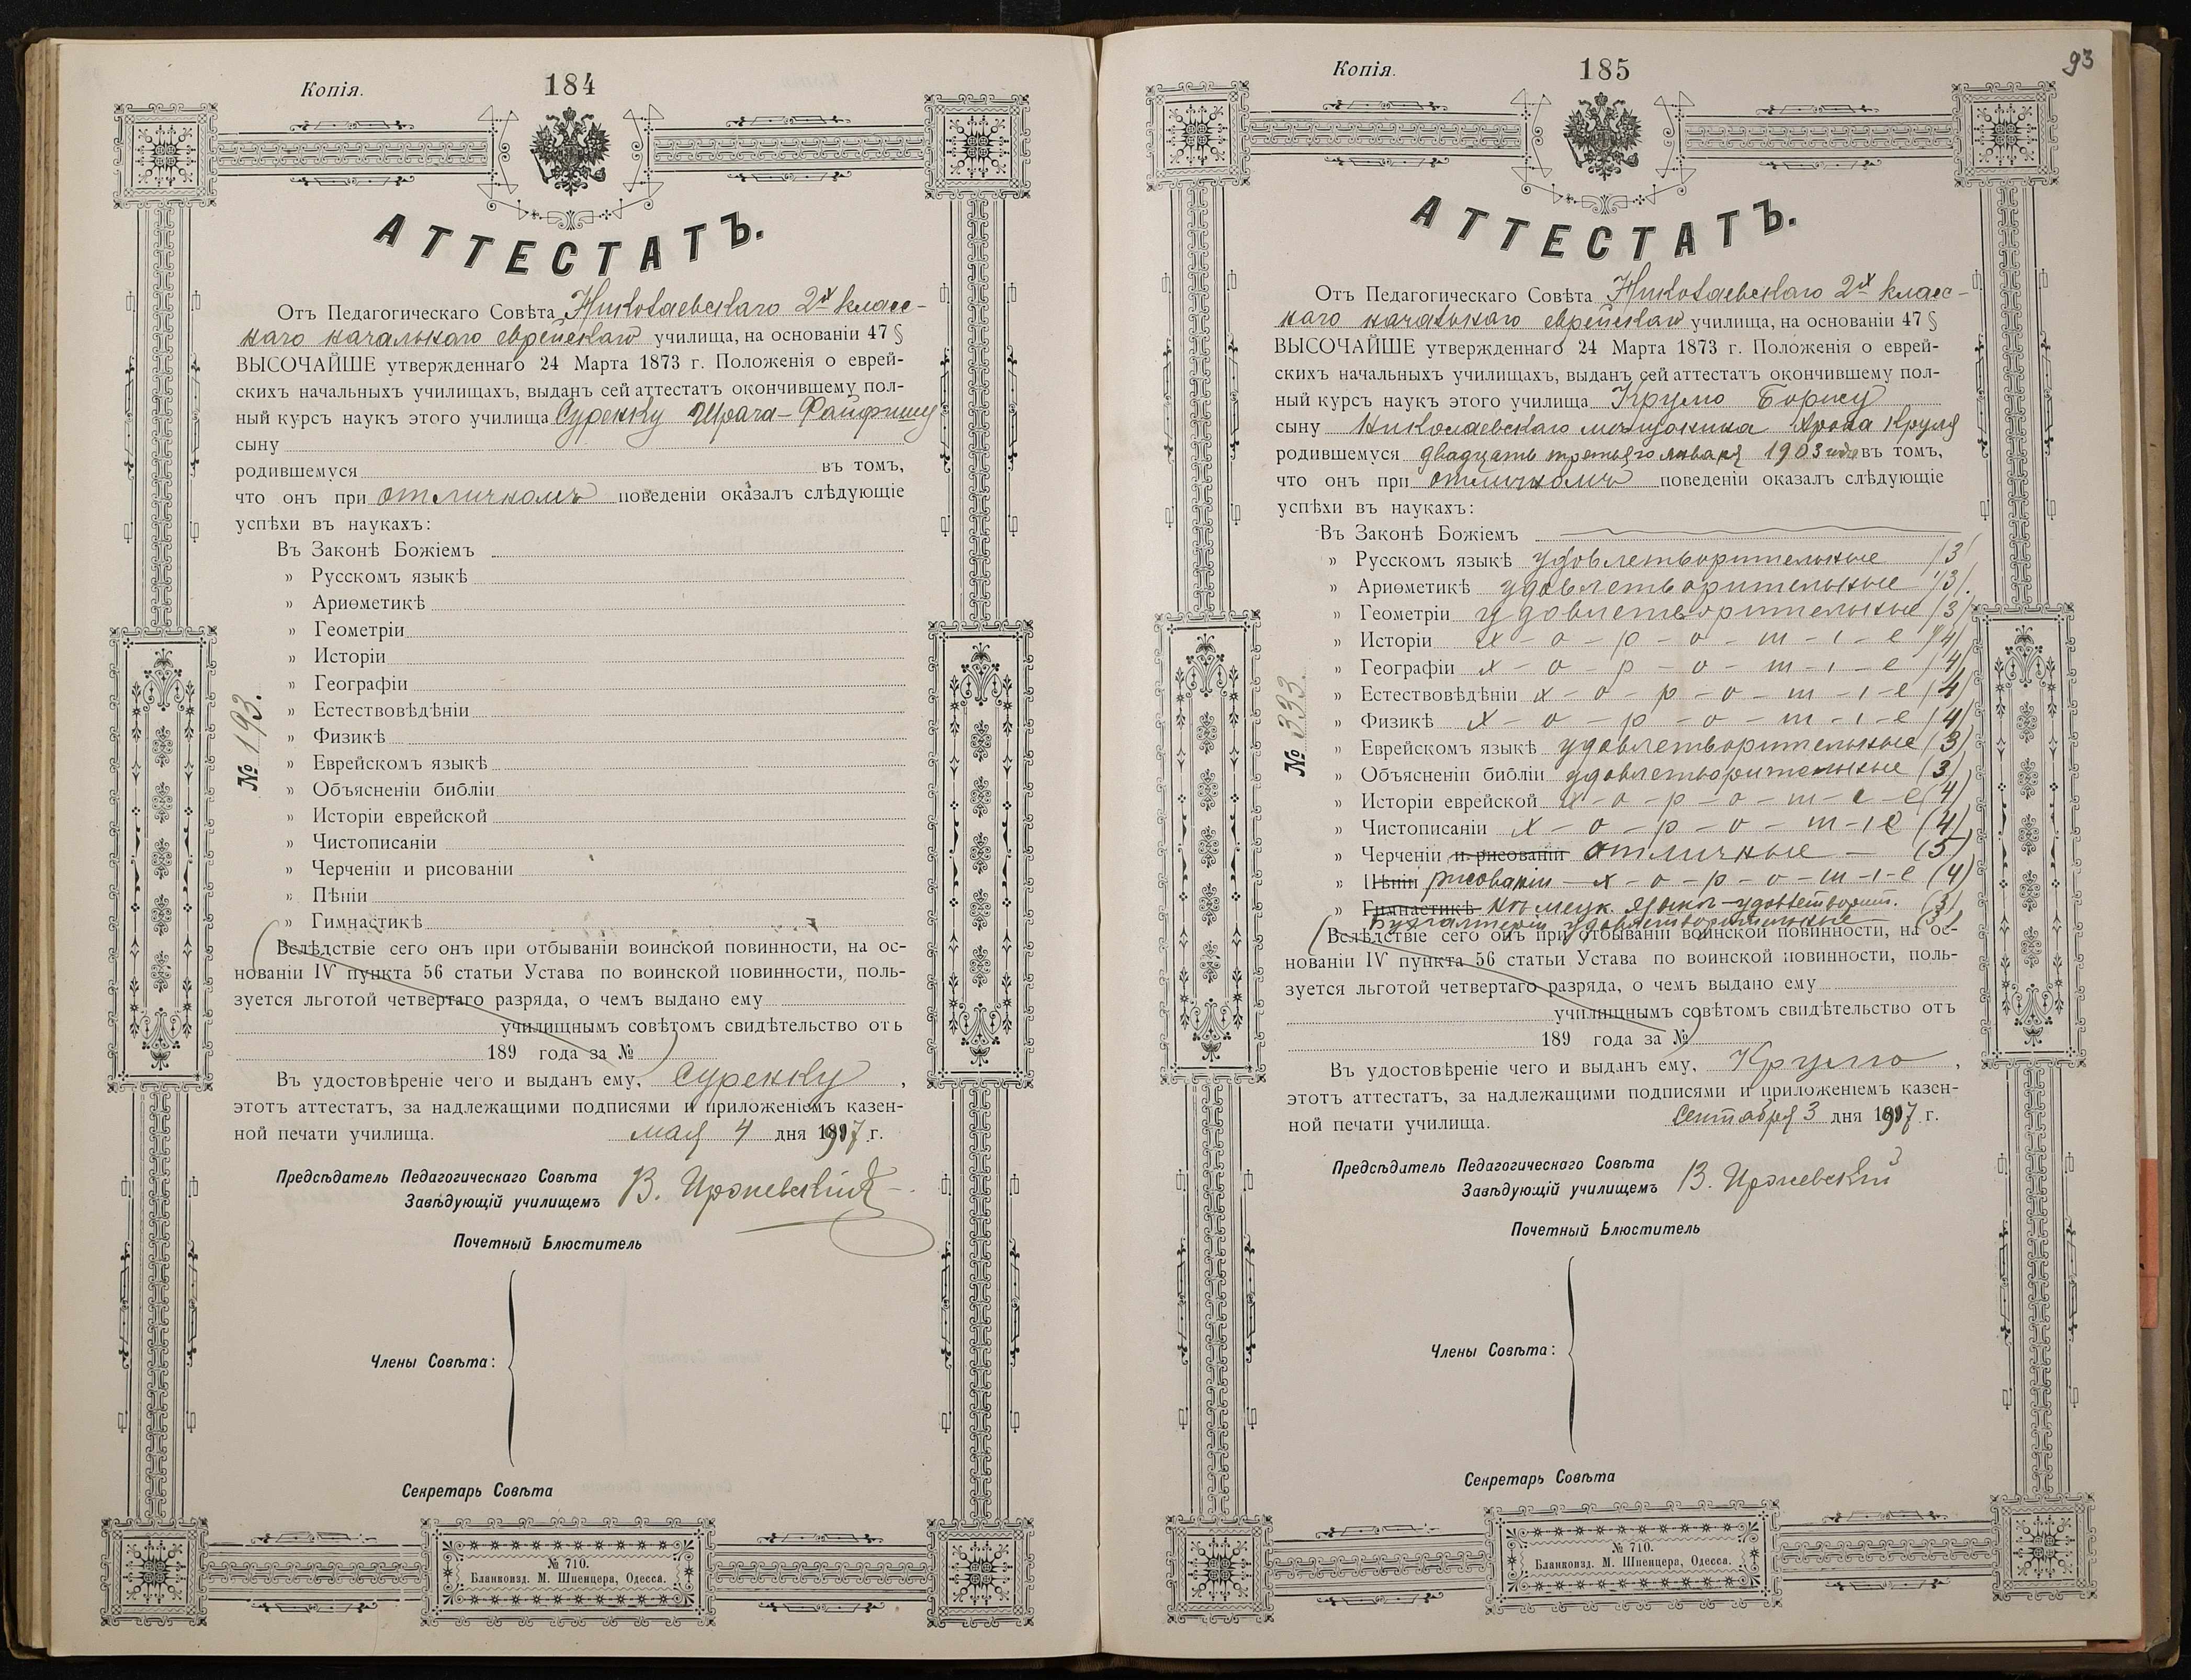 Копія.
184
АТТЕСТАТЪ.
Отъ Педагогическаго Совѣта Николаевскаго 2х класс-
наго начальнаго еврейскаго училища, на основаніи 47 §
ВЫСОЧАЙШЕ утвержденнаго 24 Марта 1873 г. Положенія о еврей-
скихъ начальныхъ училищахъ, выданъ сей аттестатъ окончившему пол-
ный курсъ наукъ этого училища Суренку Шрага-Файфишу
сыну
родившемуся въ томъ,
что онъ при отличномъ поведеніи оказалъ слѣдующіе
успѣхи въ наукахъ:
Въ Законѣ Божіемъ
» Русскомъ языкѣ
» Ариѳметикѣ
» Геометріи
» Исторіи
» Географіи
» Естествовѣдѣніи
» Физикѣ
» Еврейскомъ языкѣ
» Объясненіи библіи
» Исторіи еврейской
» Чистописаніи
» Черченіи и рисованіи
» Пѣніи
» Гимнастикѣ
№ 193.
Вслѣдствіе сего онъ при отбываніи воинской повинности, на ос-
нованіи IV пункта 56 статьи Устава по воинской повинности, поль-
зуется льготой четвертаго разряда, о чемъ выдано ему
училищнымъ совѣтомъ свидѣтельство отъ
189 года за №
Въ удостовѣреніе чего и выданъ ему, Суренку,
этотъ аттестатъ, за надлежащими подписями и приложеніемъ казен-
ной печати училища. мая 4 дня 1917 г.
Предсѣдатель Педагогическаго Совѣта
Завѣдующій училищемъ В.
Почетный Блюститель
Члены Совѣта:
Секретарь Совѣта
№ 710.
Бланкоизд. М. Шпенцера, Одесса.
93
Копія.
185
АТТЕСТАТЪ.
Отъ Педагогическаго Совѣта Николаевскаго 2х класс-
наго начальнаго еврейскаго училища, на основаніи 47 §
ВЫСОЧАЙШЕ утвержденнаго 24 Марта 1873 г. Положенія о еврей-
скихъ начальныхъ училищахъ, выданъ сей аттестатъ окончившему пол-
ный курсъ наукъ этого училища Крулю Борису
сыну Николаевскаго мѣщанина Арона Круля
родившемуся двадцать третьяго января 1903 года въ томъ,
что онъ при отличномъ поведеніи оказалъ слѣдующіе
успѣхи въ наукахъ:
Въ Законѣ Божіемъ
» Русскомъ языкѣ удовлетворительные (3)
» Ариѳметикѣ удовлетворительные (3).
» Геометріи удовлетворительные (3)
» Исторіи х-о-р-о-ш-і-е (4)
» Географіи х-о-р-о-ш-і-е (4)
» Естествовѣдѣніи х-о-р-о-ш-і-е (4)
» Физикѣ х-о-р-о-ш-і-е (4)
» Еврейскомъ языкѣ удовлетворительные (3)
» Объясненіи библіи удовлетворительные (3)
» Исторіи еврейской х-о-р-о-ш-і-е (4)
» Чистописаніи х-о-р-о-ш-і-е (4)
» Черченіи и рисованіи отличные - (5)
» Пѣніи рисованіи - х-о-р-о-ш-і-е (4)
» Гимнастикѣ нѣмецк. языкѣ-удовлетворит. (3)
Бухгалтеріи удовлетворительные (3)
№ 333.
Вслѣдствіе сего онъ при отбываніи воинской повинности, на ос-
нованіи IV пункта 56 статьи Устава по воинской повинности, поль-
зуется льготой четвертаго разряда, о чемъ выдано ему
училищнымъ совѣтомъ свидѣтельство отъ
189 года за №
Въ удостовѣреніе чего и выданъ ему, Крулю,
этотъ аттестатъ, за надлежащими подписями и приложеніемъ казен-
ной печати училища. Сентября 3 дня 1917 г.
Предсѣдатель Педагогическаго Совѣта
Завѣдующій училищемъ В.
Почетный Блюститель
Члены Совѣта:
Секретарь Совѣта
№ 710.
Бланкоизд. М. Шпенцера, Одесса.